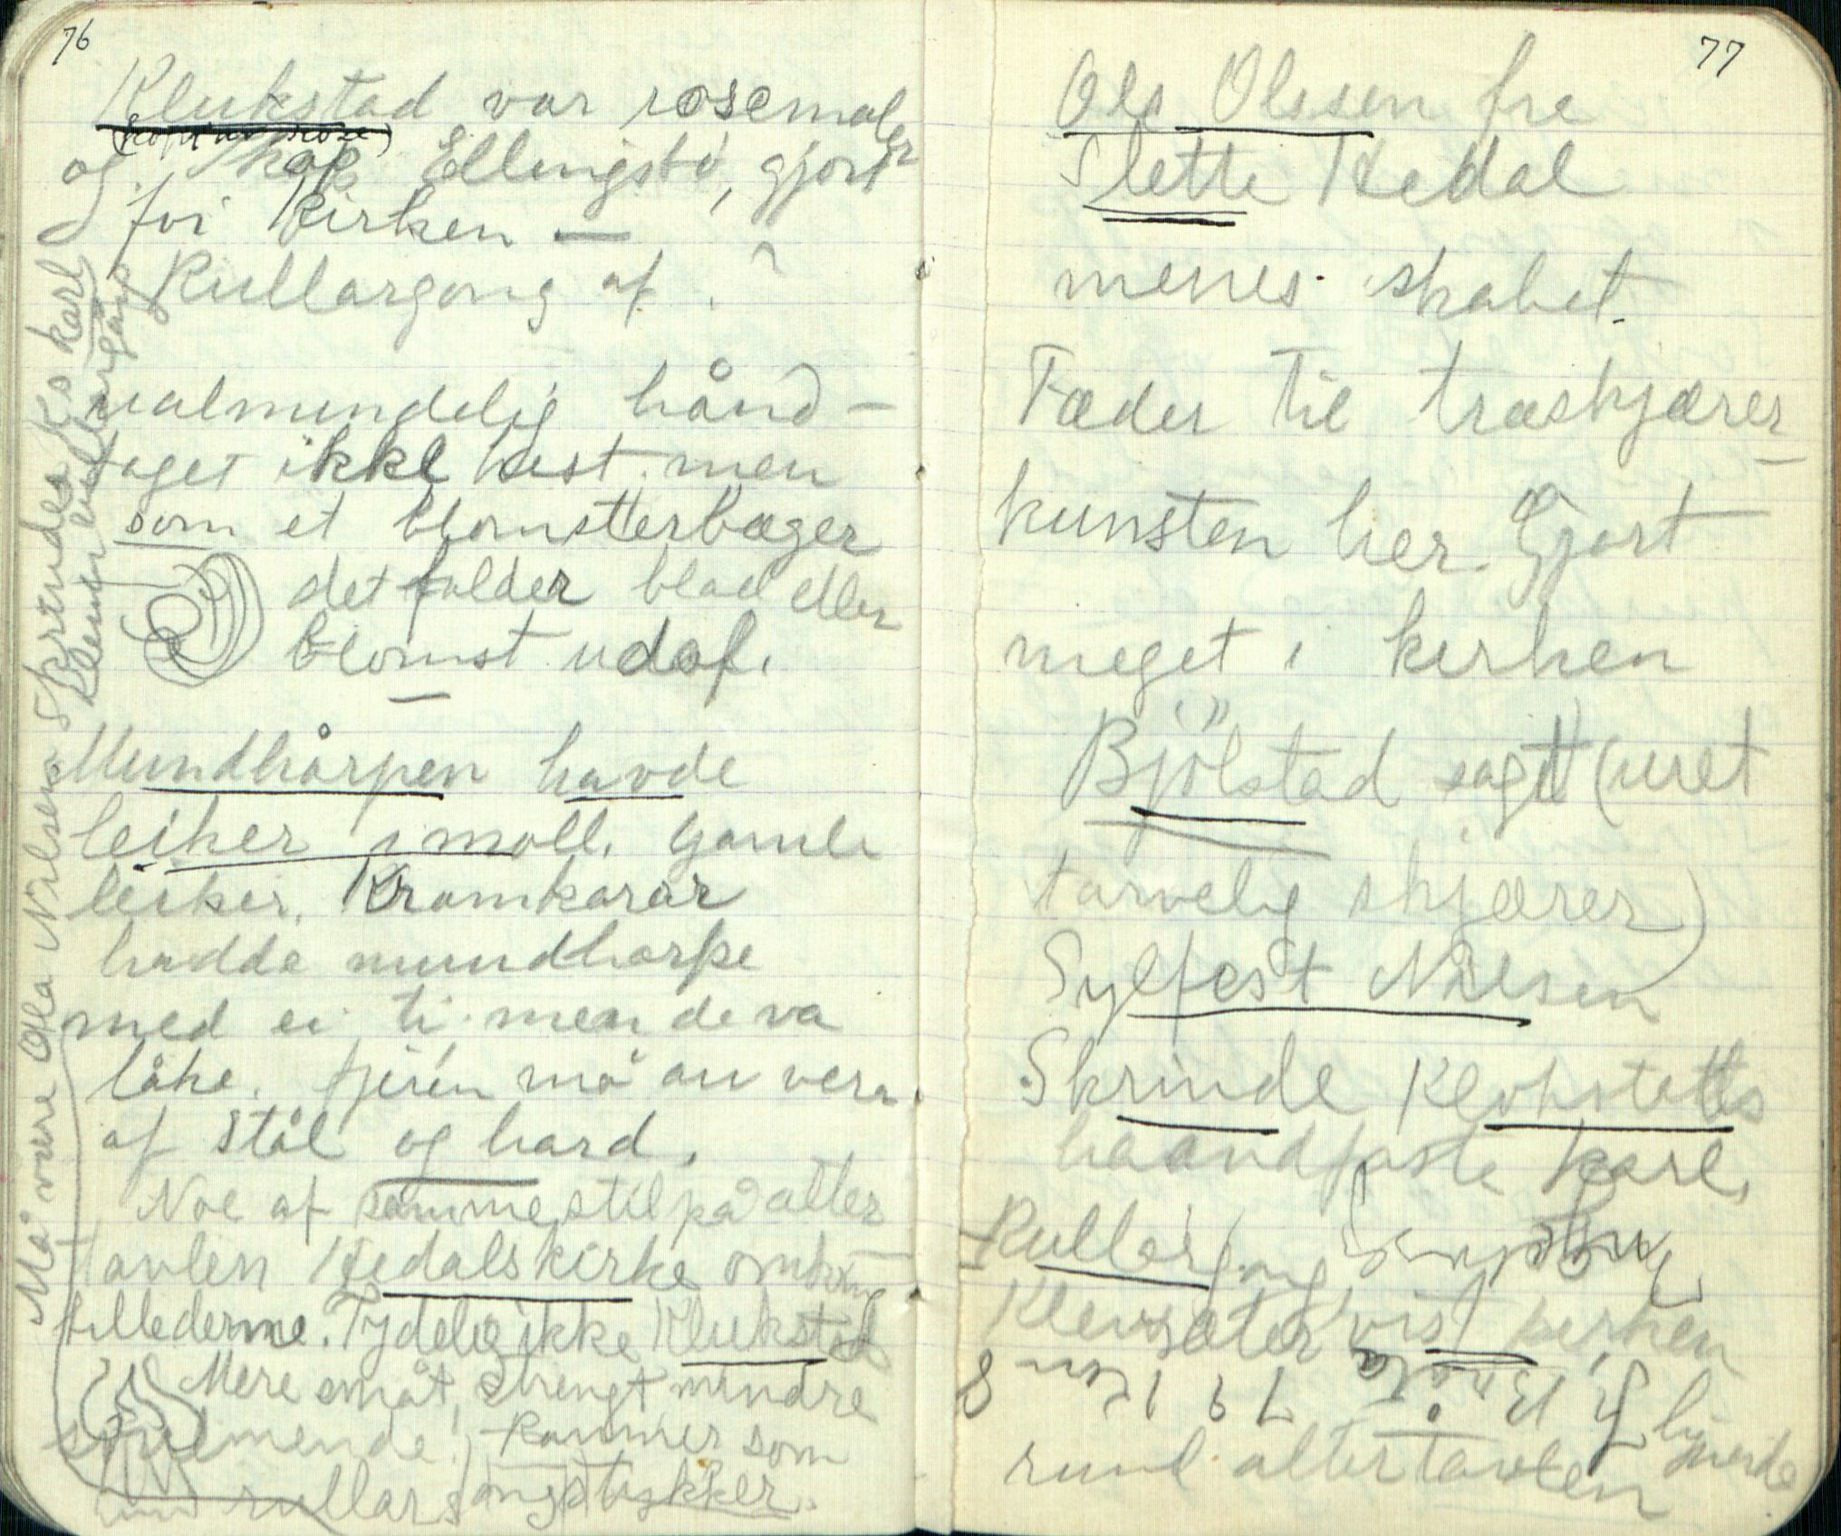 76
Klukstad var rosemaler
og Skap Ellingsbø, gjort
for kirken —
Rullargong af . ?
ualmindelig hånd-
laget ikke hest men
som et blomsterbæger
det folder blad eller
blomst udaf.
Mundhårpen havde
leiker i moll. Gamle
leiker. Kramkarar
hadde mundharpe
med ei ti men de va
låke. fjerén må an vera
af Stål og hard.
Noe af samme stil på alter
tavlen Hedalskirke omkom
billederne. Tydelig ikke Klukstad
Mere småt, strengt mindre
kommer som
rullarg
Må være Ola Nilsens Skrinde, Ks karl
77
Ola Olssen fra
Slette Hedal
menes skabet.
Fæder til træskjærer-
kunsten her Gjort
meget i kirken
Bjölstad sagt (uret
tarvelig skjærer)
Sylfest Nilsen
Skrinde Klokstads
haandfaste karl,
Rullargong
Klevsæter vist kirken
rund altertavlen
lignende